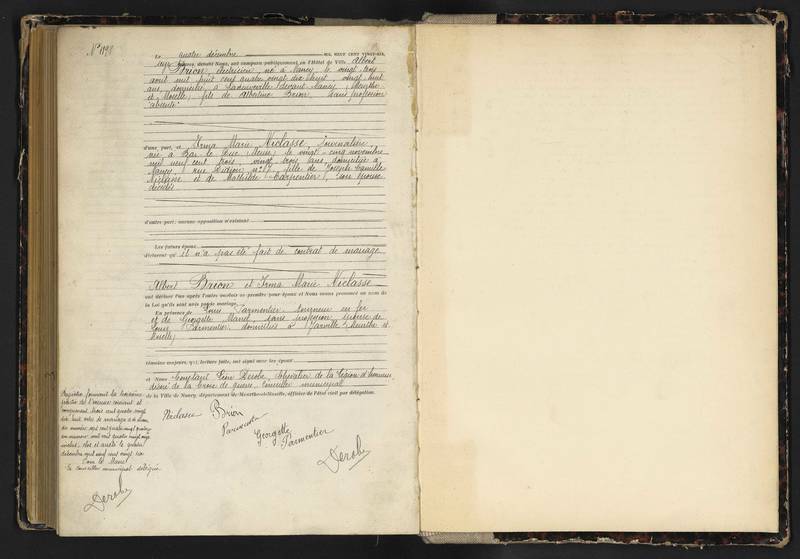 N° 1198
Le quatre décembre MIL NEUF CENT VINGT-SIX,
heures, devant Nous, ont comparu publiquement en l'Hôtel de Ville Albert
Brion, électricien, né à Nancy le vingt trois
août mil huit cent quatre vingt dix huit, vingt huit
ans, domicilié à devant Nancy, Meurthe
et Moselle, fils de Albertine Brion, sans profession
absente
d'une part, et Irma Marie Niclasse, journalière
née à Bar le Duc Meuse le vingt-cinq novembre
mil neuf cent trois, vingt trois ans, domiciliée à
Nancy, rue n° 17, fille de Joseph Camille
Niclasse et de Mathilde Carpentier, son épouse
décédés
d'autre part; aucune opposition n'existant
Les futurs époux
déclarent qu'il n'a pas été fait de contrat de mariage
Albert Brion et Irma Marie Niclasse
ont déclaré l'un après l'autre vouloir se prendre pour époux et Nous avons prononcé au nom de
la Loi qu'ils sont unis par le mariage.
En présence de Louis Parmentier, tourneur en fer
et de Georgette Manel, sans profession, épouse de
Louis Parmentier, domiciliés à Jarville Meurthe et
Moselle,
témoins majeurs, qui, lecture faite, ont signé avec les époux
et Nous Constant Léon Derobe, Chevalier de la Légion d'honneur
décoré de la Croix de guerre, Conseiller municipal
de la Ville de Nancy, département de Meurthe-et-Moselle, officier de l'état civil par délégation.
Niclasse Brion
Parmentier
Georgette
Parmentier
Derobe
Registre formant la troisième
partie de l'année courante et
comprenant trois cent quatre vingt
dix huit actes de mariage
du numéro
inclus, clos et arrêté le quatre
décembre mil neuf cent vingt six
Pour le Maire
Le Conseiller municipal délégué
Derobe